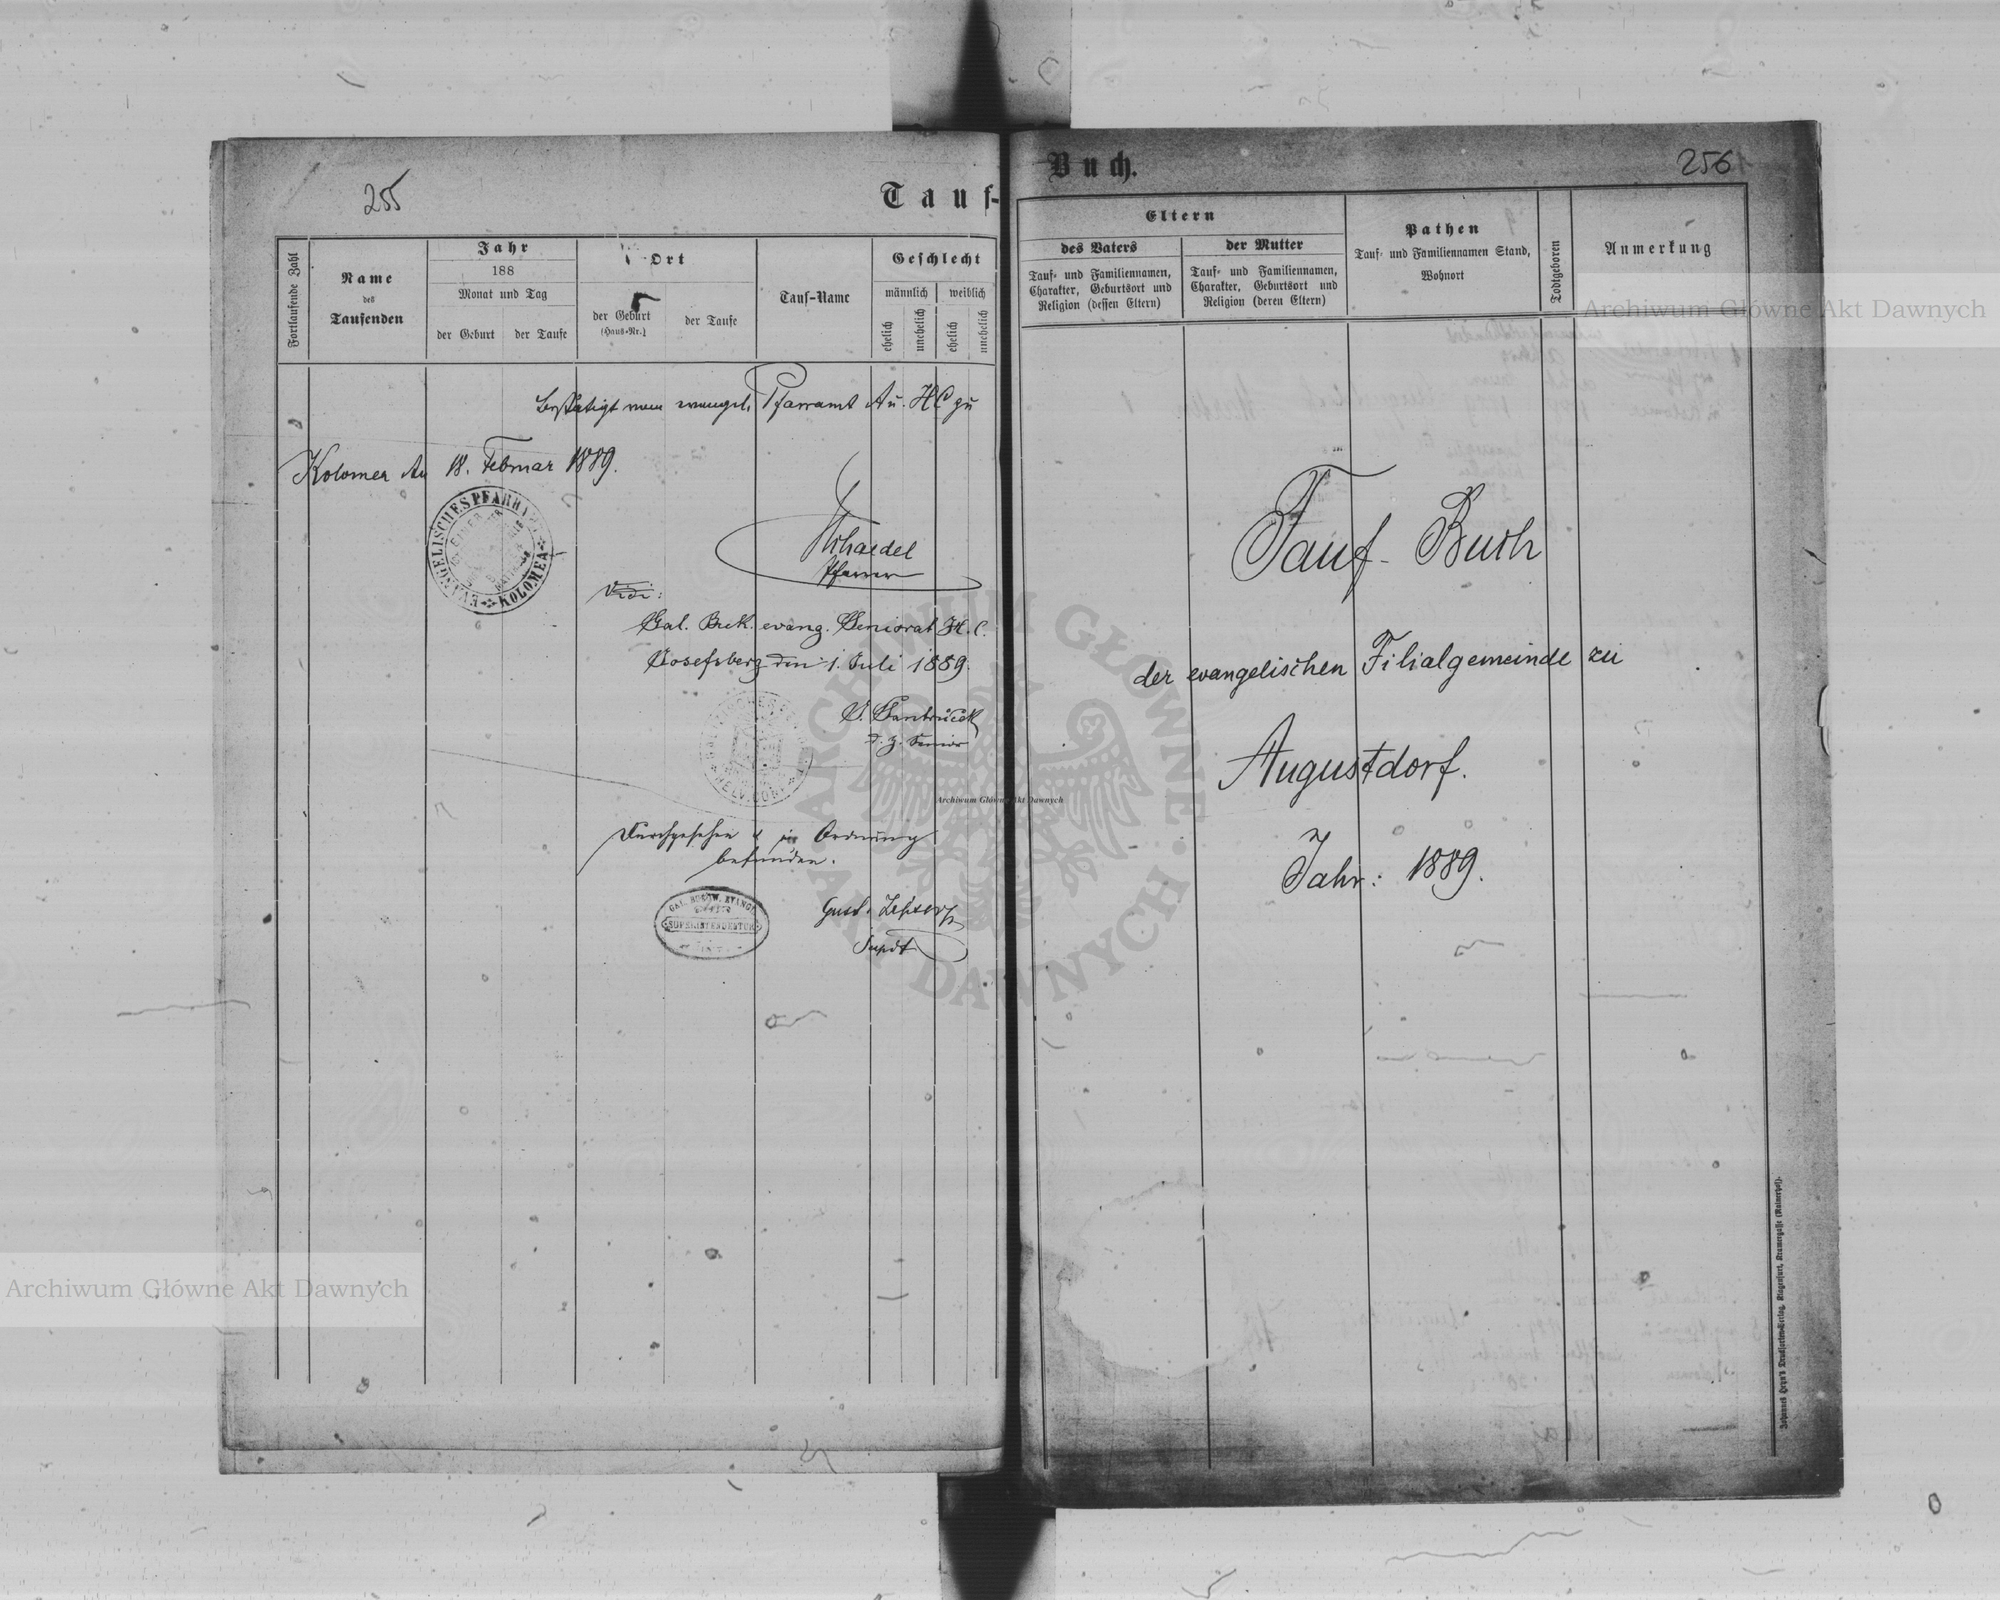 255
Tauf-
Fortlaufende Zahl
Name
des
Taufenden
Jahr
188
Monat und Tag
der Geburt
der Taufe
Ort
der Geburt
(Haus-Nr.)
der Taufe
Tauf-Name
Geschlecht
männlich
weiblich
ehelich
unehelich
ehelich
unehelich
Bestätigt vom evangel. Pfarramt A u. HC zu
Kolomea 18. Februar 1889.
EVANGELISCHES PFARRAMT KOLOMEA
Pfarrer
Vidi:
Gal. Buk. evang. Seniorat H. C.
Josefsberg den 1. Juli 1889.
d. z. Senior
HELV. CONF.
Durchgesehen & in Ordnung
befunden.
GAL. BUKOW. EVANG.
SUPERINTENDENTUR
Supdt
Buch.
256
Eltern
des Vaters
Tauf- und Familiennamen,
Charakter, Geburtsort und
Religion (dessen Eltern)
der Mutter
Tauf- und Familiennamen,
Charakter, Geburtsort und
Religion (deren Eltern)
Pathen
Tauf- und Familiennamen Stand,
Wohnort
Todtgeboren
Anmerkung
Tauf-Buch
der evangelischen Filialgemeinde zu
Augustdorf.
Jahr: 1889.
Johannes Heyn's Drucksorten-Verlag, Klagenfurt, Kramergasse (Rainerhof).
Archiwum Główne Akt Dawnych
Archiwum Główne Akt Dawnych
Archiwum Główne Akt Dawnych
ARCHIWUM GŁÓWNE AKT DAWNYCH